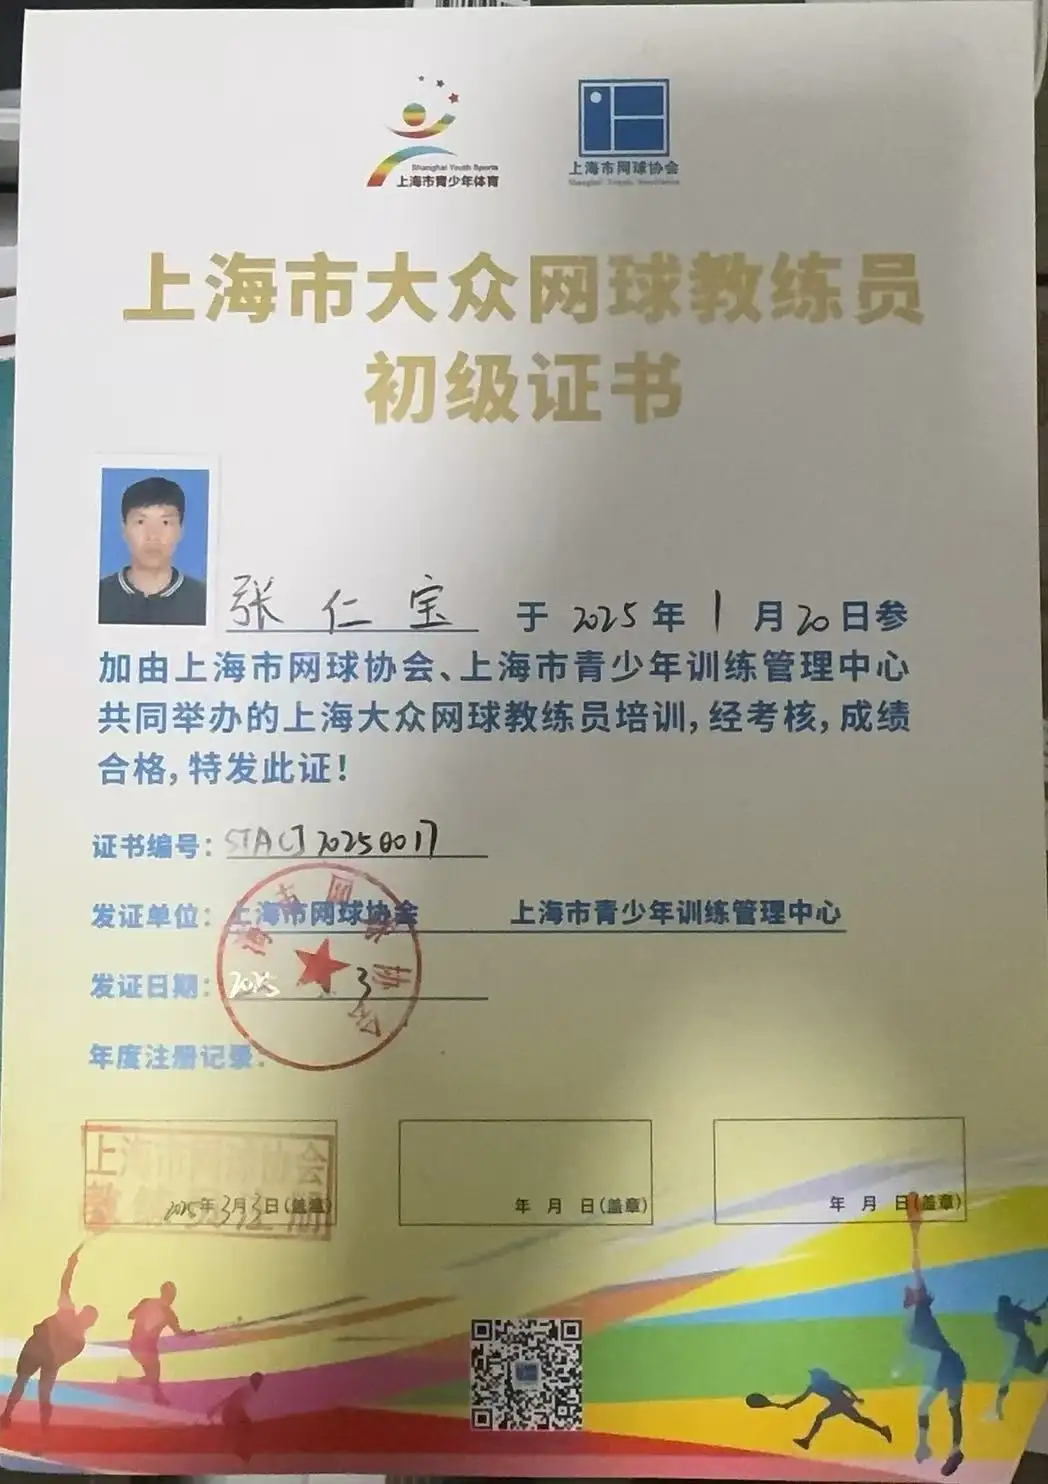 Shanghai Youth Sports
上海市青少年体育
上海市网球协会
Shanghai Tennis Association
上海市大众网球教练员
初级证书
张仁宝 于 2025 年 1 月 20 日参
加由上海市网球协会、上海市青少年训练管理中心
共同举办的上海大众网球教练员培训,经考核,成绩
合格,特发此证!
证书编号: STACJ20250017
发证单位: 上海市网球协会 上海市青少年训练管理中心
发证日期: 2025 3
年度注册记录:
上海市网球协会
2025年3月3日(盖章)
年 月 日(盖章)
年 月 日(盖章)